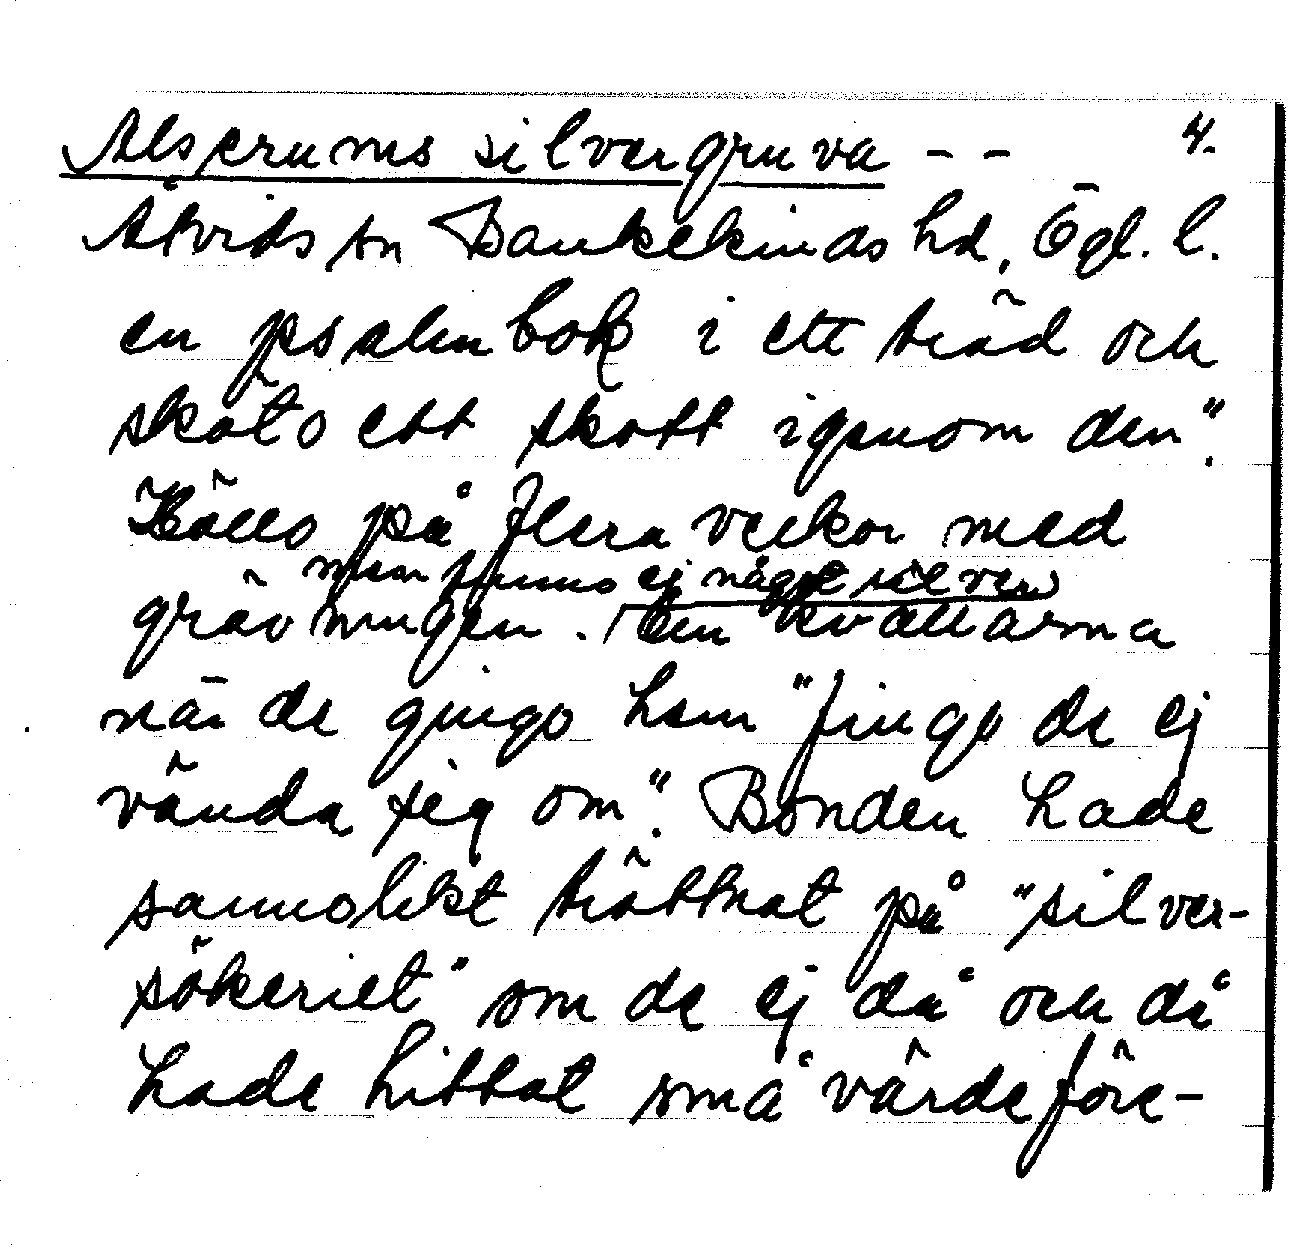 Alserums silvergruva - - 4.
Åtvids sn Bankekinds hd, Ögl. l.
en psalmbok i ett träd och
sköto ett skott igenom den".
Höllo på flera veckor med
men funno ej något silver
grävningen. Om kvällarna
när de gingo hem "fingo de ej
vända sig om". Bonden hade
sannolikt tröttnat på "silver-
sökeriet" om de ej då och då
hade hittat små värdeföre-